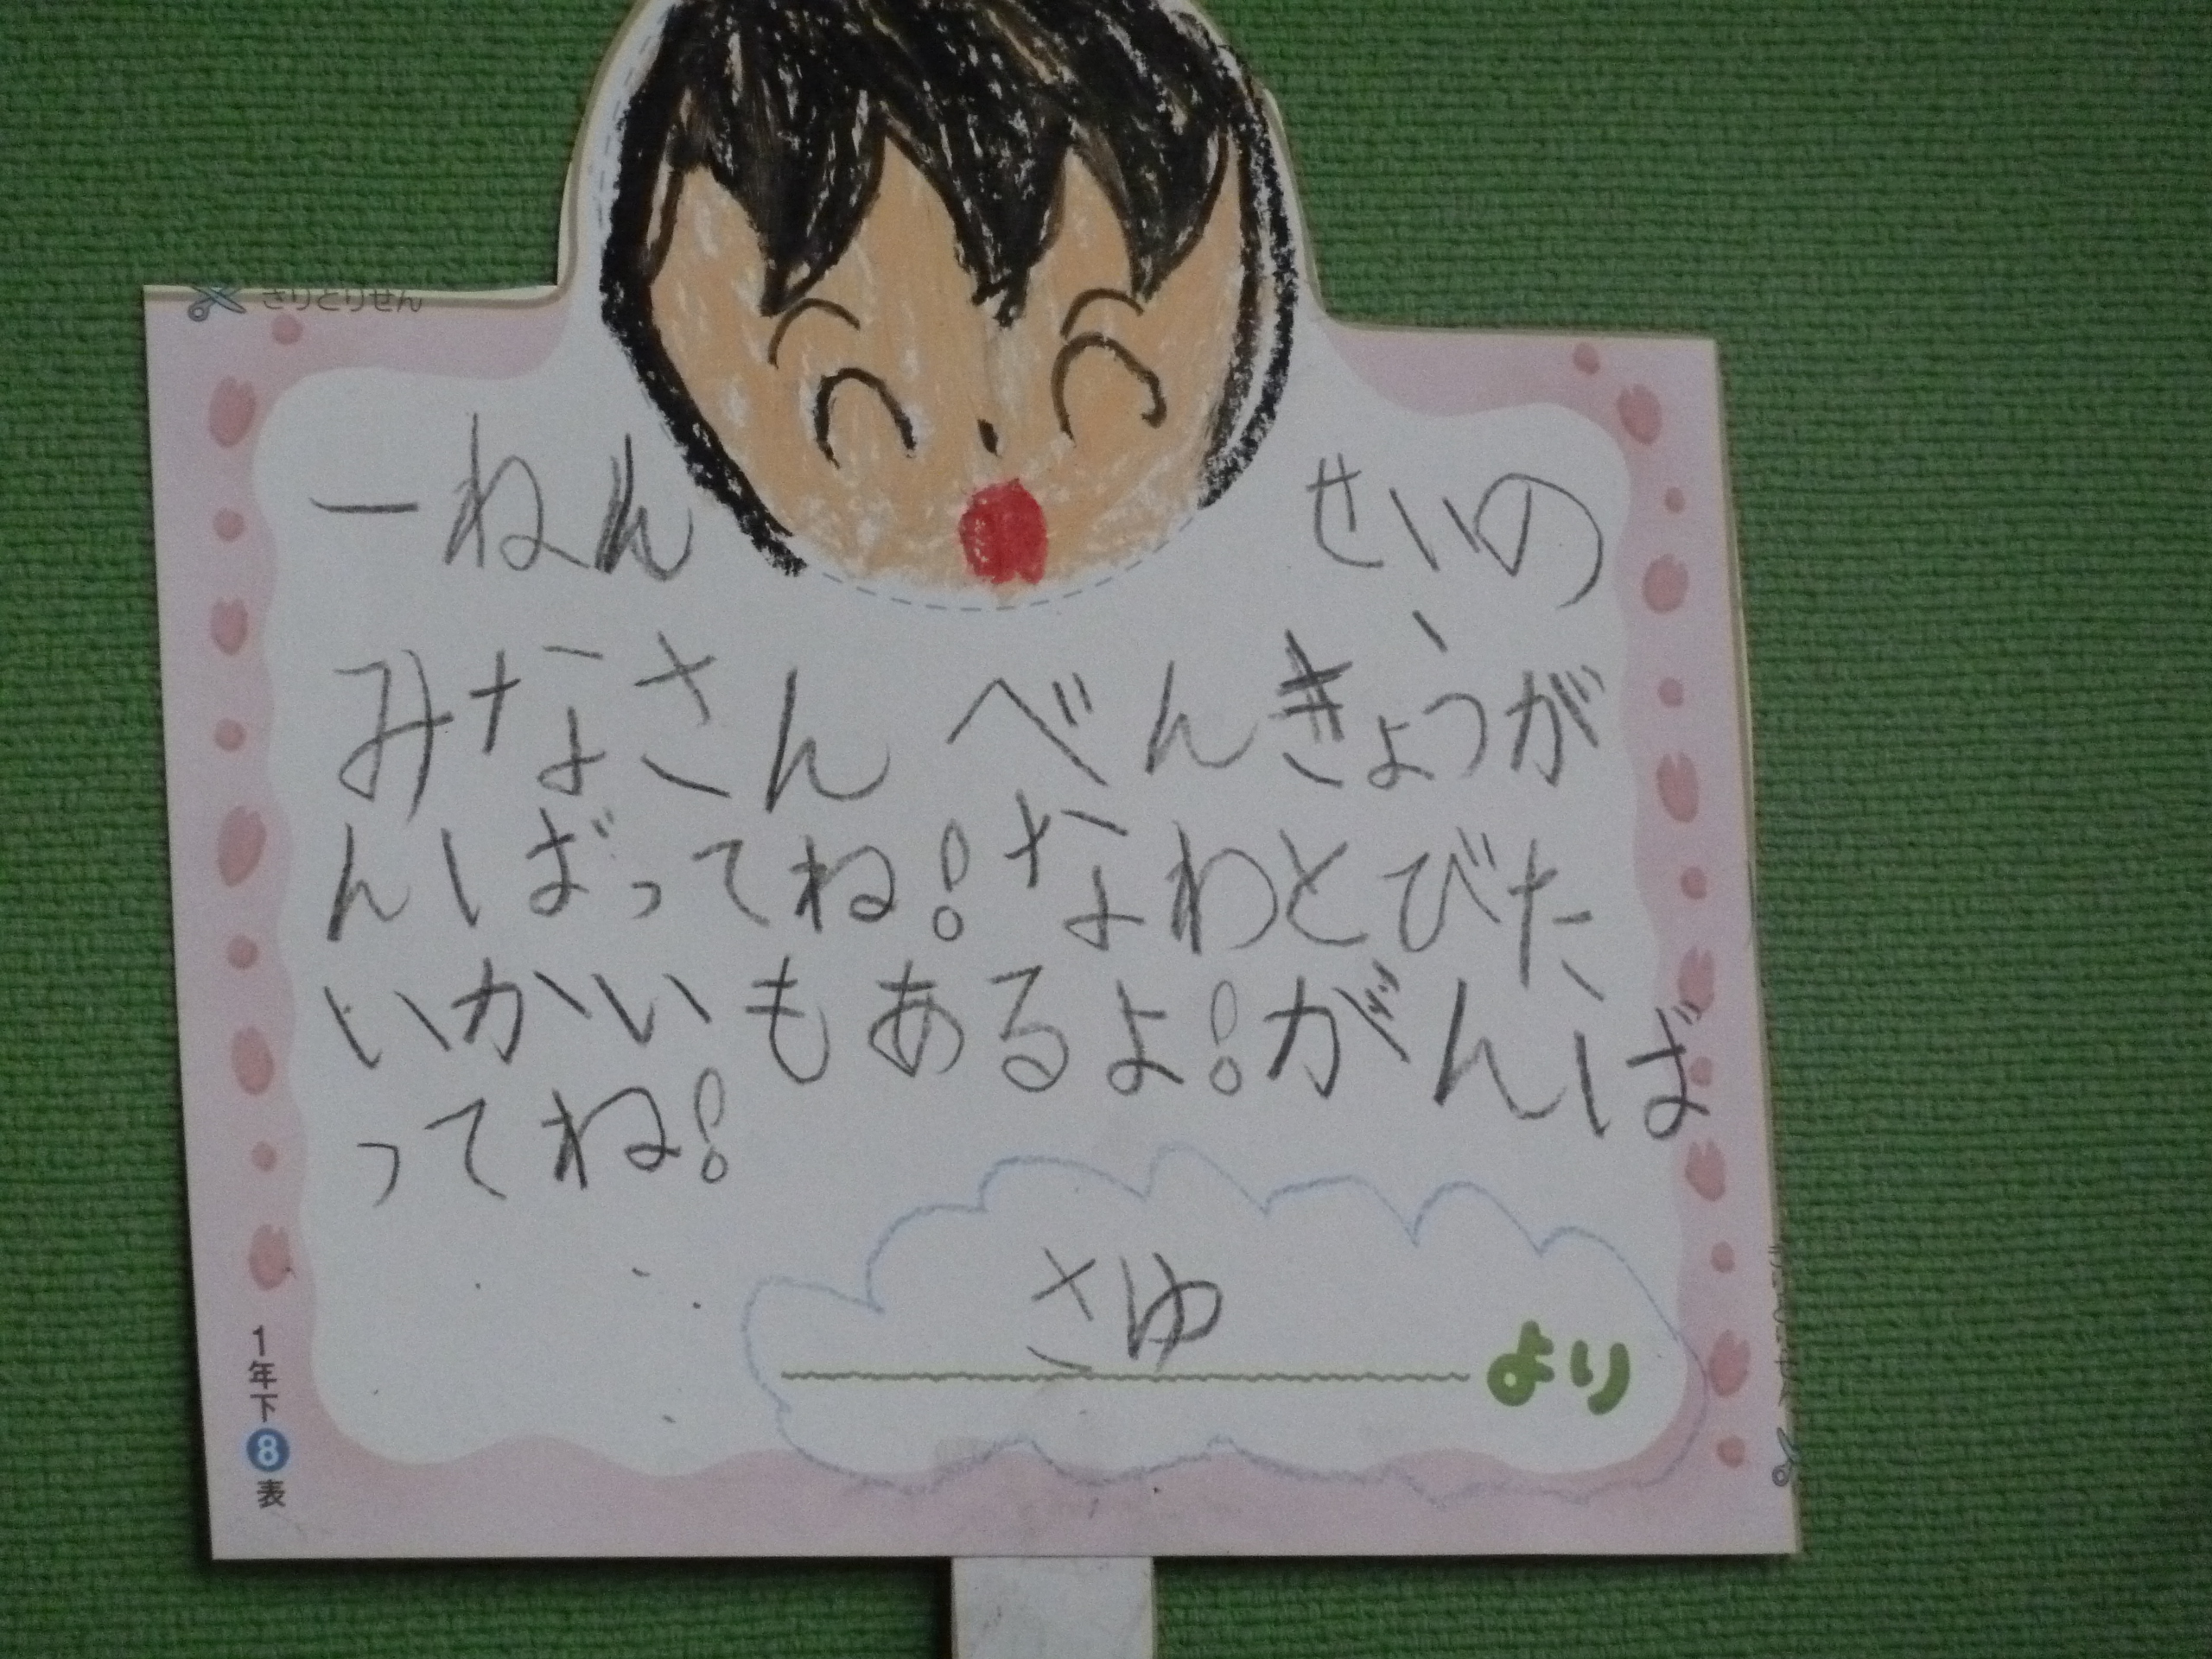 きりとりせん
一ねん せいの
みなさん べんきょうが
んばってね!なわとびた
いかいもあるよ!がんば
ってね!
さゆ より
1年下8表